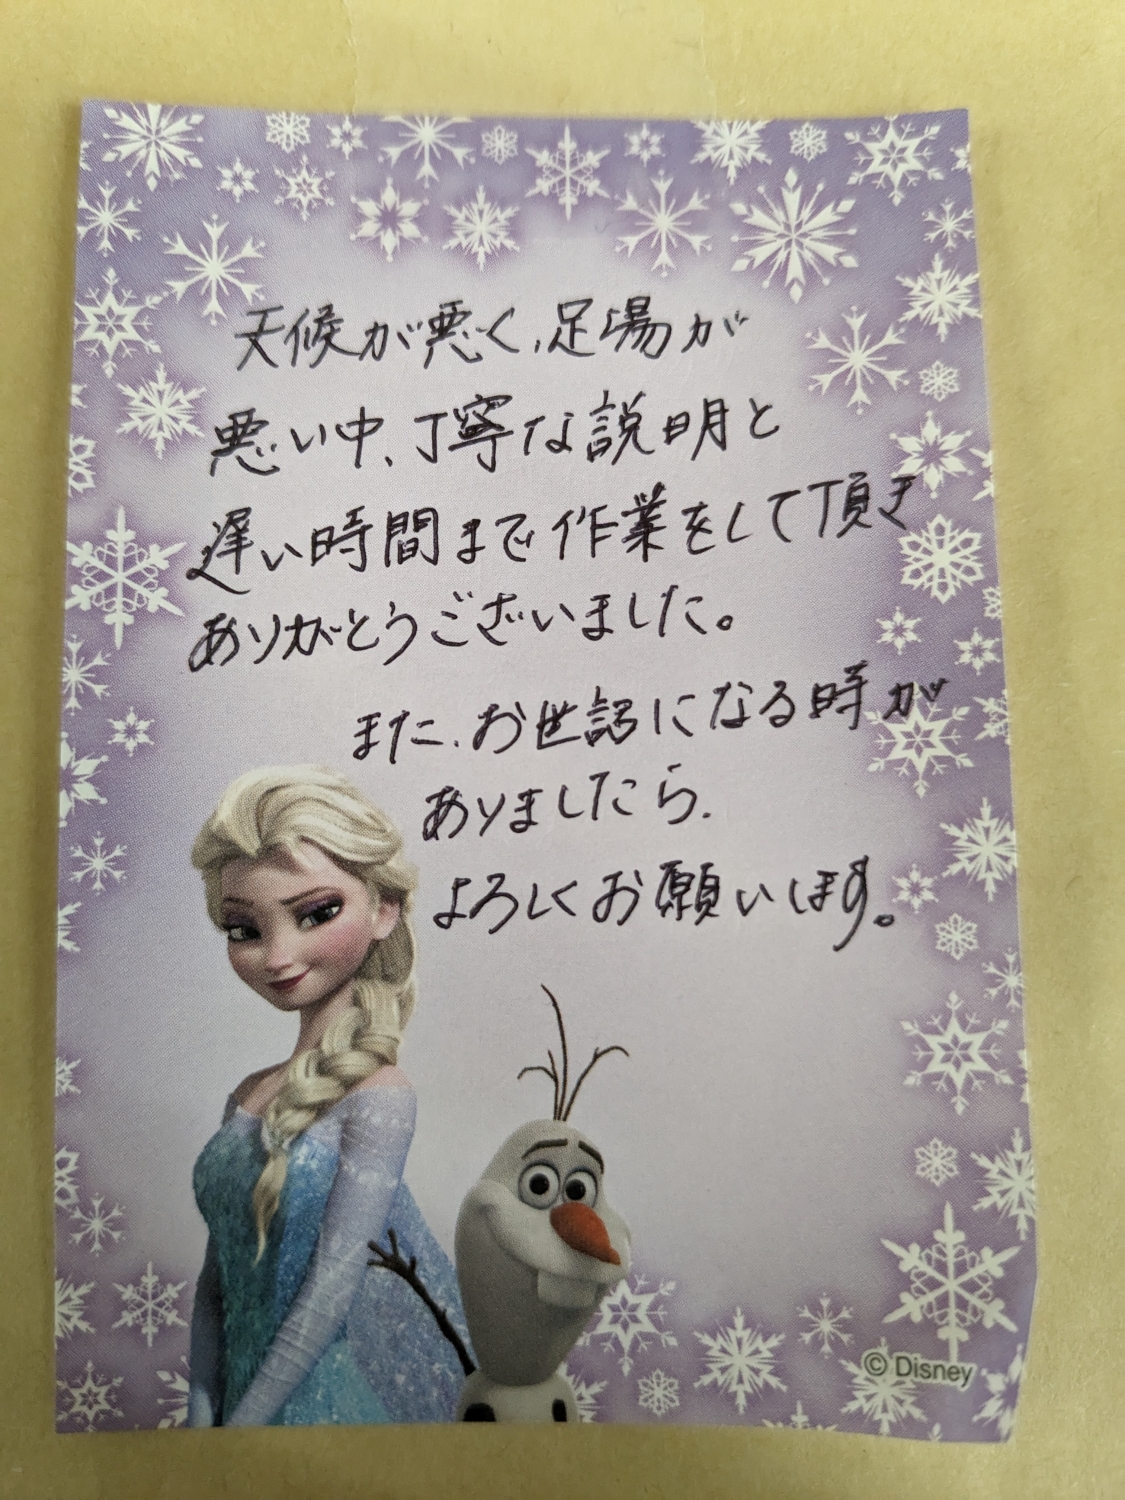 天候が悪く、足場が
悪い中、丁寧な説明と
遅い時間まで作業をして頂き
ありがとうございました。
また、お世話になる時が
ありましたら、
よろしくお願いします。
© Disney